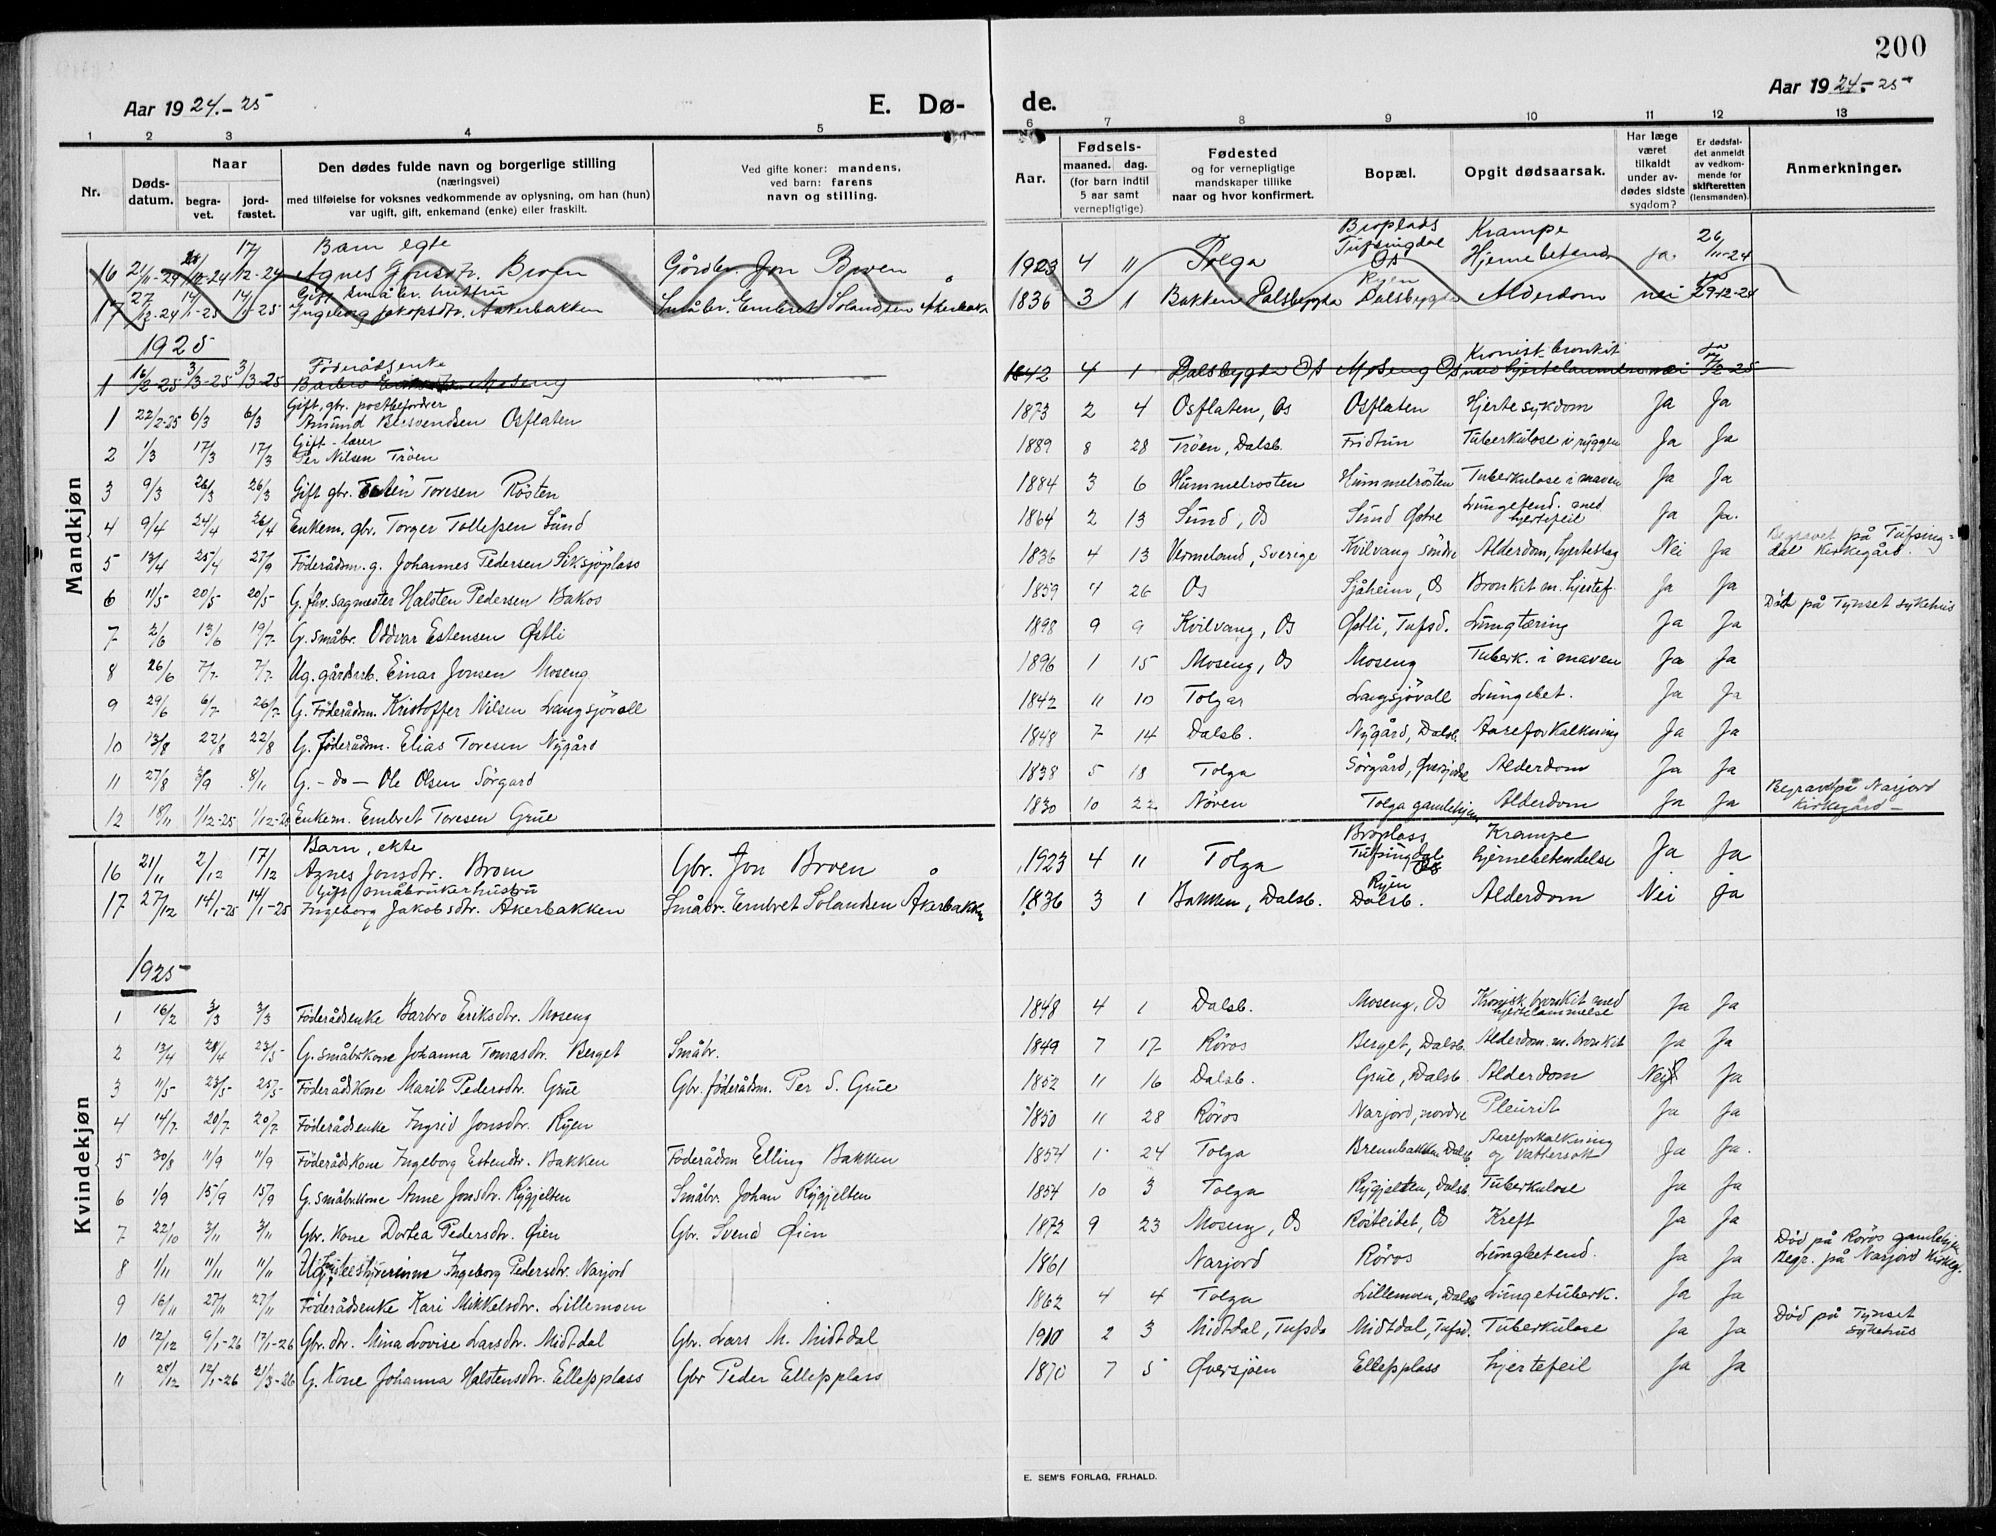 200
Aar 1924.-25 E. Dø- de. Aar 1924.-25
1 2 3 4 5 6 7 8 9 10 11 12 13
Nr. Døds-datum. Naar begra-vet. jord-fæstet. Den dødes fulde navn og borgerlige stilling (næringsvei) med tilføielse for voksnes vedkommende av oplysning, om han (hun) var ugift, gift, enkemand (enke) eller fraskilt. Ved gifte koner: mandens, ved barn: farens navn og stilling. Aar. Fødsels- maaned. dag. (for barn indtil 5 aar samt vernepligtige) Fødested og for vernepligtige mandskaper tillike naar og hvor konfirmert. Bopæl. Opgit dødsaarsak. Har læge været tilkaldt under av-dødes sidste sygdom? Er dødsfal-det anmeldt av vedkom-mende for skifteretten (lensmanden). Anmerkninger.
Mandkjøn
16 21/11-24 17/12-24 Barn egte Agnes Jonsdr. Broen Gårdbr. Jon Broen 1923 4 11 Tolga Broplads Tufsingdal Os Krampe Hjernebetend Ja 26/11-24
17 27/12-24 14/1-25 14/1-25 Gift småbr. hustru Ingeborg Jakopsdr. Aakerbakken Småbr. Embret Solandsen 1836 3 1 Bakken Dalsbygda Ryen Dalsbygda Alderdom nei 29-12-24
1925
1 16/2-25 3/3-25 3/3-25 Föderådsenke Moseng 1842 4 1 Dalsbygda Os Moseng Os Kronisk bronkit nei
1 22/2-25 6/3 6/3 Gift, gbr. postbefordrer Amund Bersvendsen Osflaten 1873 2 4 Osflaten, Os Osflaten Hjertesykdom Ja Ja
2 1/3 17/3 17/3 Gift - lærer Per Nilsen Tröen 1889 8 28 Tröen, Dalsb. Fridtun Tuberkulose i ryggen Ja Ja
3 9/3 26/3 26/3 Gift gbr. Toresen Røsten 1884 3 6 Hummelrosten Hummelrösten Tuberkulose i maven Ja Ja
4 9/4 24/4 26/4 Enkem. gbr. Torger Tollefsen Sund 1864 2 13 Sund, Os Sund Østre Lungetend. med hjertefeil Ja Ja.
5 13/4 25/4 27/9 Föderådm. g. Johannes Pedersen Siksjöplass 1836 4 13 Vermeland, Sverige Kvilvang Söndre Alderdom, hjerteslag Nei Ja Begravet på Tufsing=dal Kirkegård.
6 11/5 20/5 20/5 G. fhv. sagmester Halsten Pedersen Bakos 1859 4 26 Os Sjåheim, Os Bronkit m. hjertef. Ja Ja
7 2/6 13/6 19/7 G. småbr. Oddvar Estensen Østli 1898 9 9 Kvilvang, Os Østli, Tufsd. Lungtæring Ja Ja Död på Tynset sykehus
8 26/6 7/7 7/7 Ug. gårdarb. Einar Jonsen Moseng 1896 1 15 Moseng, Os Moseng Tuberk. i maven Ja Ja
9 29/6 6/7 26/7 G. Föderådsm. Kristoffer Nilsen Langsjövoll 1842 11 10 Tolga Langsjövoll Lungebet. Ja Ja
10 13/8 22/8 22/8 G. föderådm. Elias Toresen Nygård 1848 7 14 Dalsb. Nygård, Dalsb. Aareforkalkning Ja Ja
11 27/8 3/9 8/11 G. - do - Ole Olsen Sörgard 1838 5 18 Tolga Sörgård, Øversjødal Alderdom Ja Ja
12 18/11 1/12-25 1/12-25 Enkem. Embret Toresen Grue 1830 10 22 Nören Tolga gamlehjem Alderdom Ja Ja Begravd på Narjord Kirkegård -
Kvindekjøn
16 21/11 2/12 17/12 Barn, ekte Agnes Jonsdr. Broen Gbr. Jon Broen 1923 4 11 Tolga Broplass Tufsingdal Os Krampe hjernebetendelse Ja Ja
17 27/12 14/1-25 14/1-25 Gift småbrukerhustru Ingeborg Jakobsdr. Åkerbakken Småbr. Embret Solandsen Åkerbakken 1836 3 1 Bakken, Dalsb. Ryen Dalsb. Alderdom Nei Ja
1925
1 16/2 3/3 3/3 Föderådsenke Barbro Eriksdr. Moseng 1848 4 1 Dalsb. Moseng, Os Kronisk bronkit med hjertelammelse Ja Ja
2 13/4 28/4 23/5 G. småbr.kone Johanna Tomasdr. Berget Småbr. 1849 7 17 Röros Berget, Dalsb. Alderdom m. bronkit Ja Ja
3 11/5 23/5 25/5 Föderådskone Marit Pedersdr. Grue Gbr. föderådsm. Per S. Grue 1852 11 16 Dalsb. Grue, Dalsb Alderdom Nei Ja
4 14/7 20/7 20/7 Föderådsenke Ingrid Jonsdr. Ryen 1850 11 28 Röros Narjord, nordre Pleurit Ja Ja
5 30/8 11/9 11/9 Föderådskone Ingeborg Estendr. Bakken Föderådsm Elling Bakken 1854 1 24 Tolga Brennbakken Dalsb. Aareforkalkning og Vattersott Ja Ja.
6 1/9 15/9 15/9 G. småbr.kone Anne Jonsdr. Rygjelten Småbr. Johan Rygjelten 1854 10 3 Tolga Rygjelten, Dalsb. Tuberkulose Ja Ja
7 22/10 3/11 3/11 Gbr. Kone Dortea Pedersdr. Øien Gbr. Svend Øien 1872 9 23 Moseng, Os Rösteidet, Os Kreft Ja Ja
8 1/11 11/11 11/11 Ug. Ingeborg Pedersdr. Narjord 1861 Narjord Röros Lungbetend. Ja Ja Död på Röros gamlehjem Begr. på Narjord Kirkeg.
9 16/11 27/11 27/11 Föderådsenke Kari Mikkelsdr. Lillemoen 1862 4 4 Tolga Lillemoen, Dalsb Lungetuberk. Ja Ja
10 12/12 9/1-26 17/1-26 Gbr. dr. Mina Lovise Larsdr. Midtdal Gbr. Lars M. Midtdal 1910 2 3 Midtdal, Tufsd Midtdal, Tufsd. Tuberkulose Ja Ja Död på Tynset sykehus
11 28/12 12/1-26 21/3-26 G. Kone Johanna Halstensdr. Ellefsplass Gbr Peder Ellefsplass 1870 7 5 Øversjöen Ellefsplass hjertefeil Ja Ja
E. SEM'S FORLAG, FR.HALD.